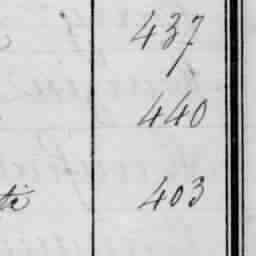 437
440
403